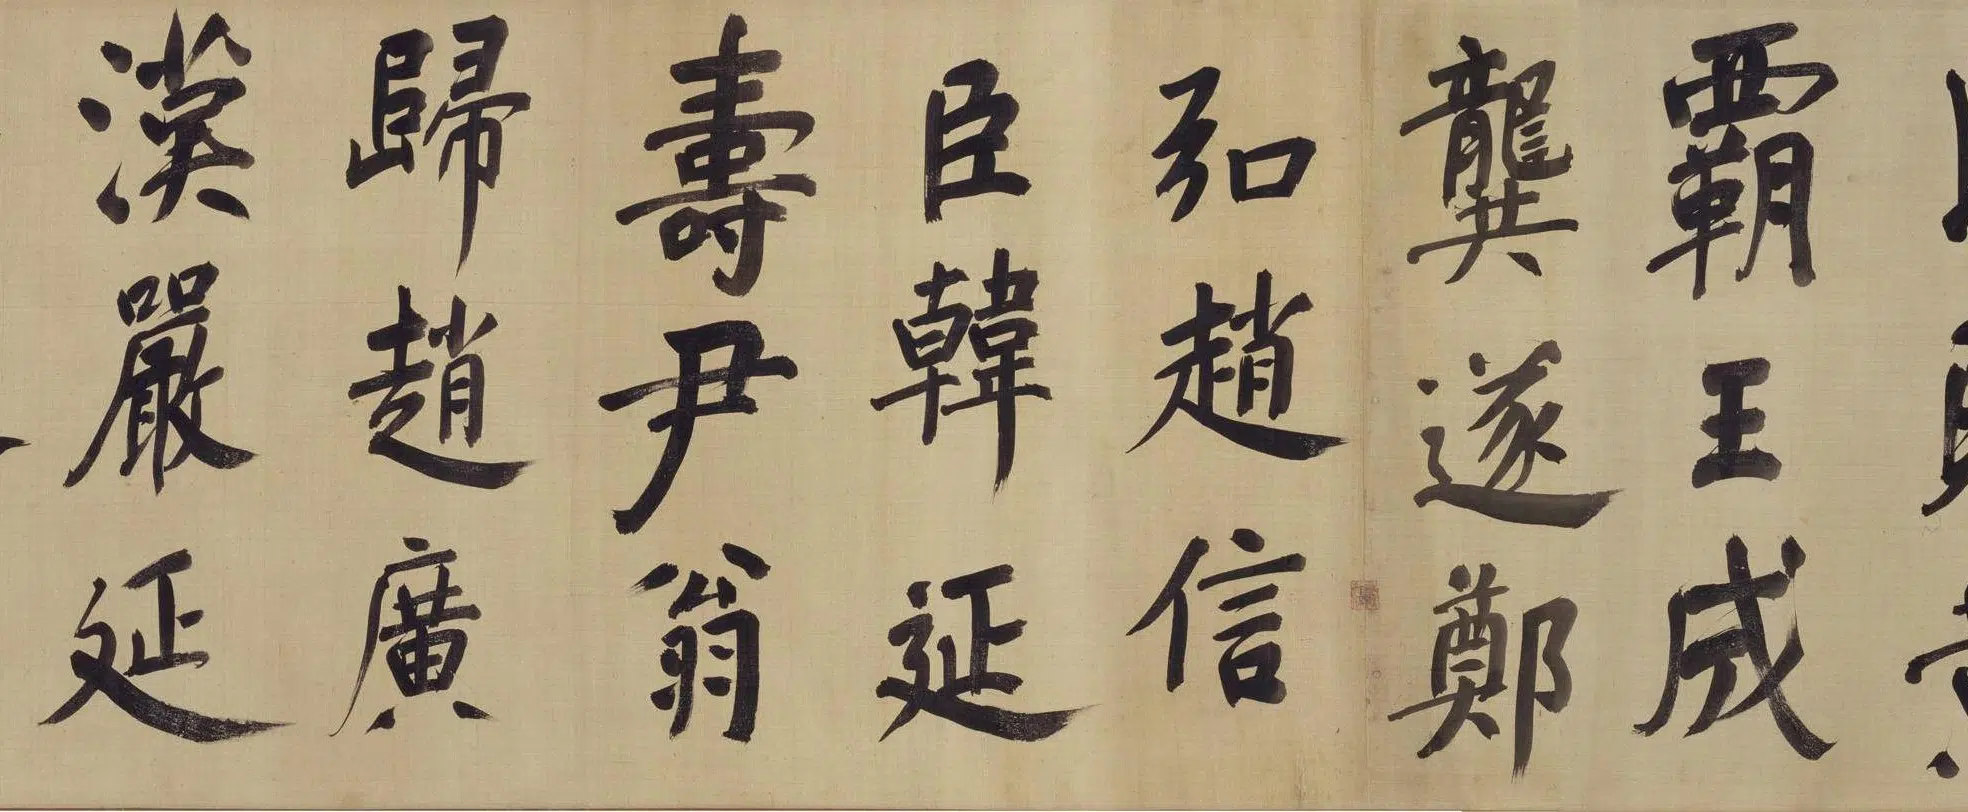 霸王成
龔遂鄭
弘趙信
臣韓延
壽尹翁
歸趙廣
漢嚴延